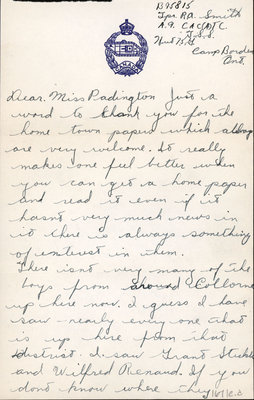 B95815
Tpr. R.A. Smith
A.9. C.A.C.(A)T.C.
T.S.S.
Hut
Camp Borden
Ont.
Dear Miss Padington Just a
word to thank you for the
home town paper which always
are very welcome. It really
makes one feel better when
you can get a home paper
and read it even if it
hasnt very much news in
it there is always something
of enterest in them.
There isnt very many of the
boys from around Colborne
up here now. I guess I have
saw nearly every one that
is up here from that
district. I saw Grant
and Wilfred Renaud. If you
dont know where they